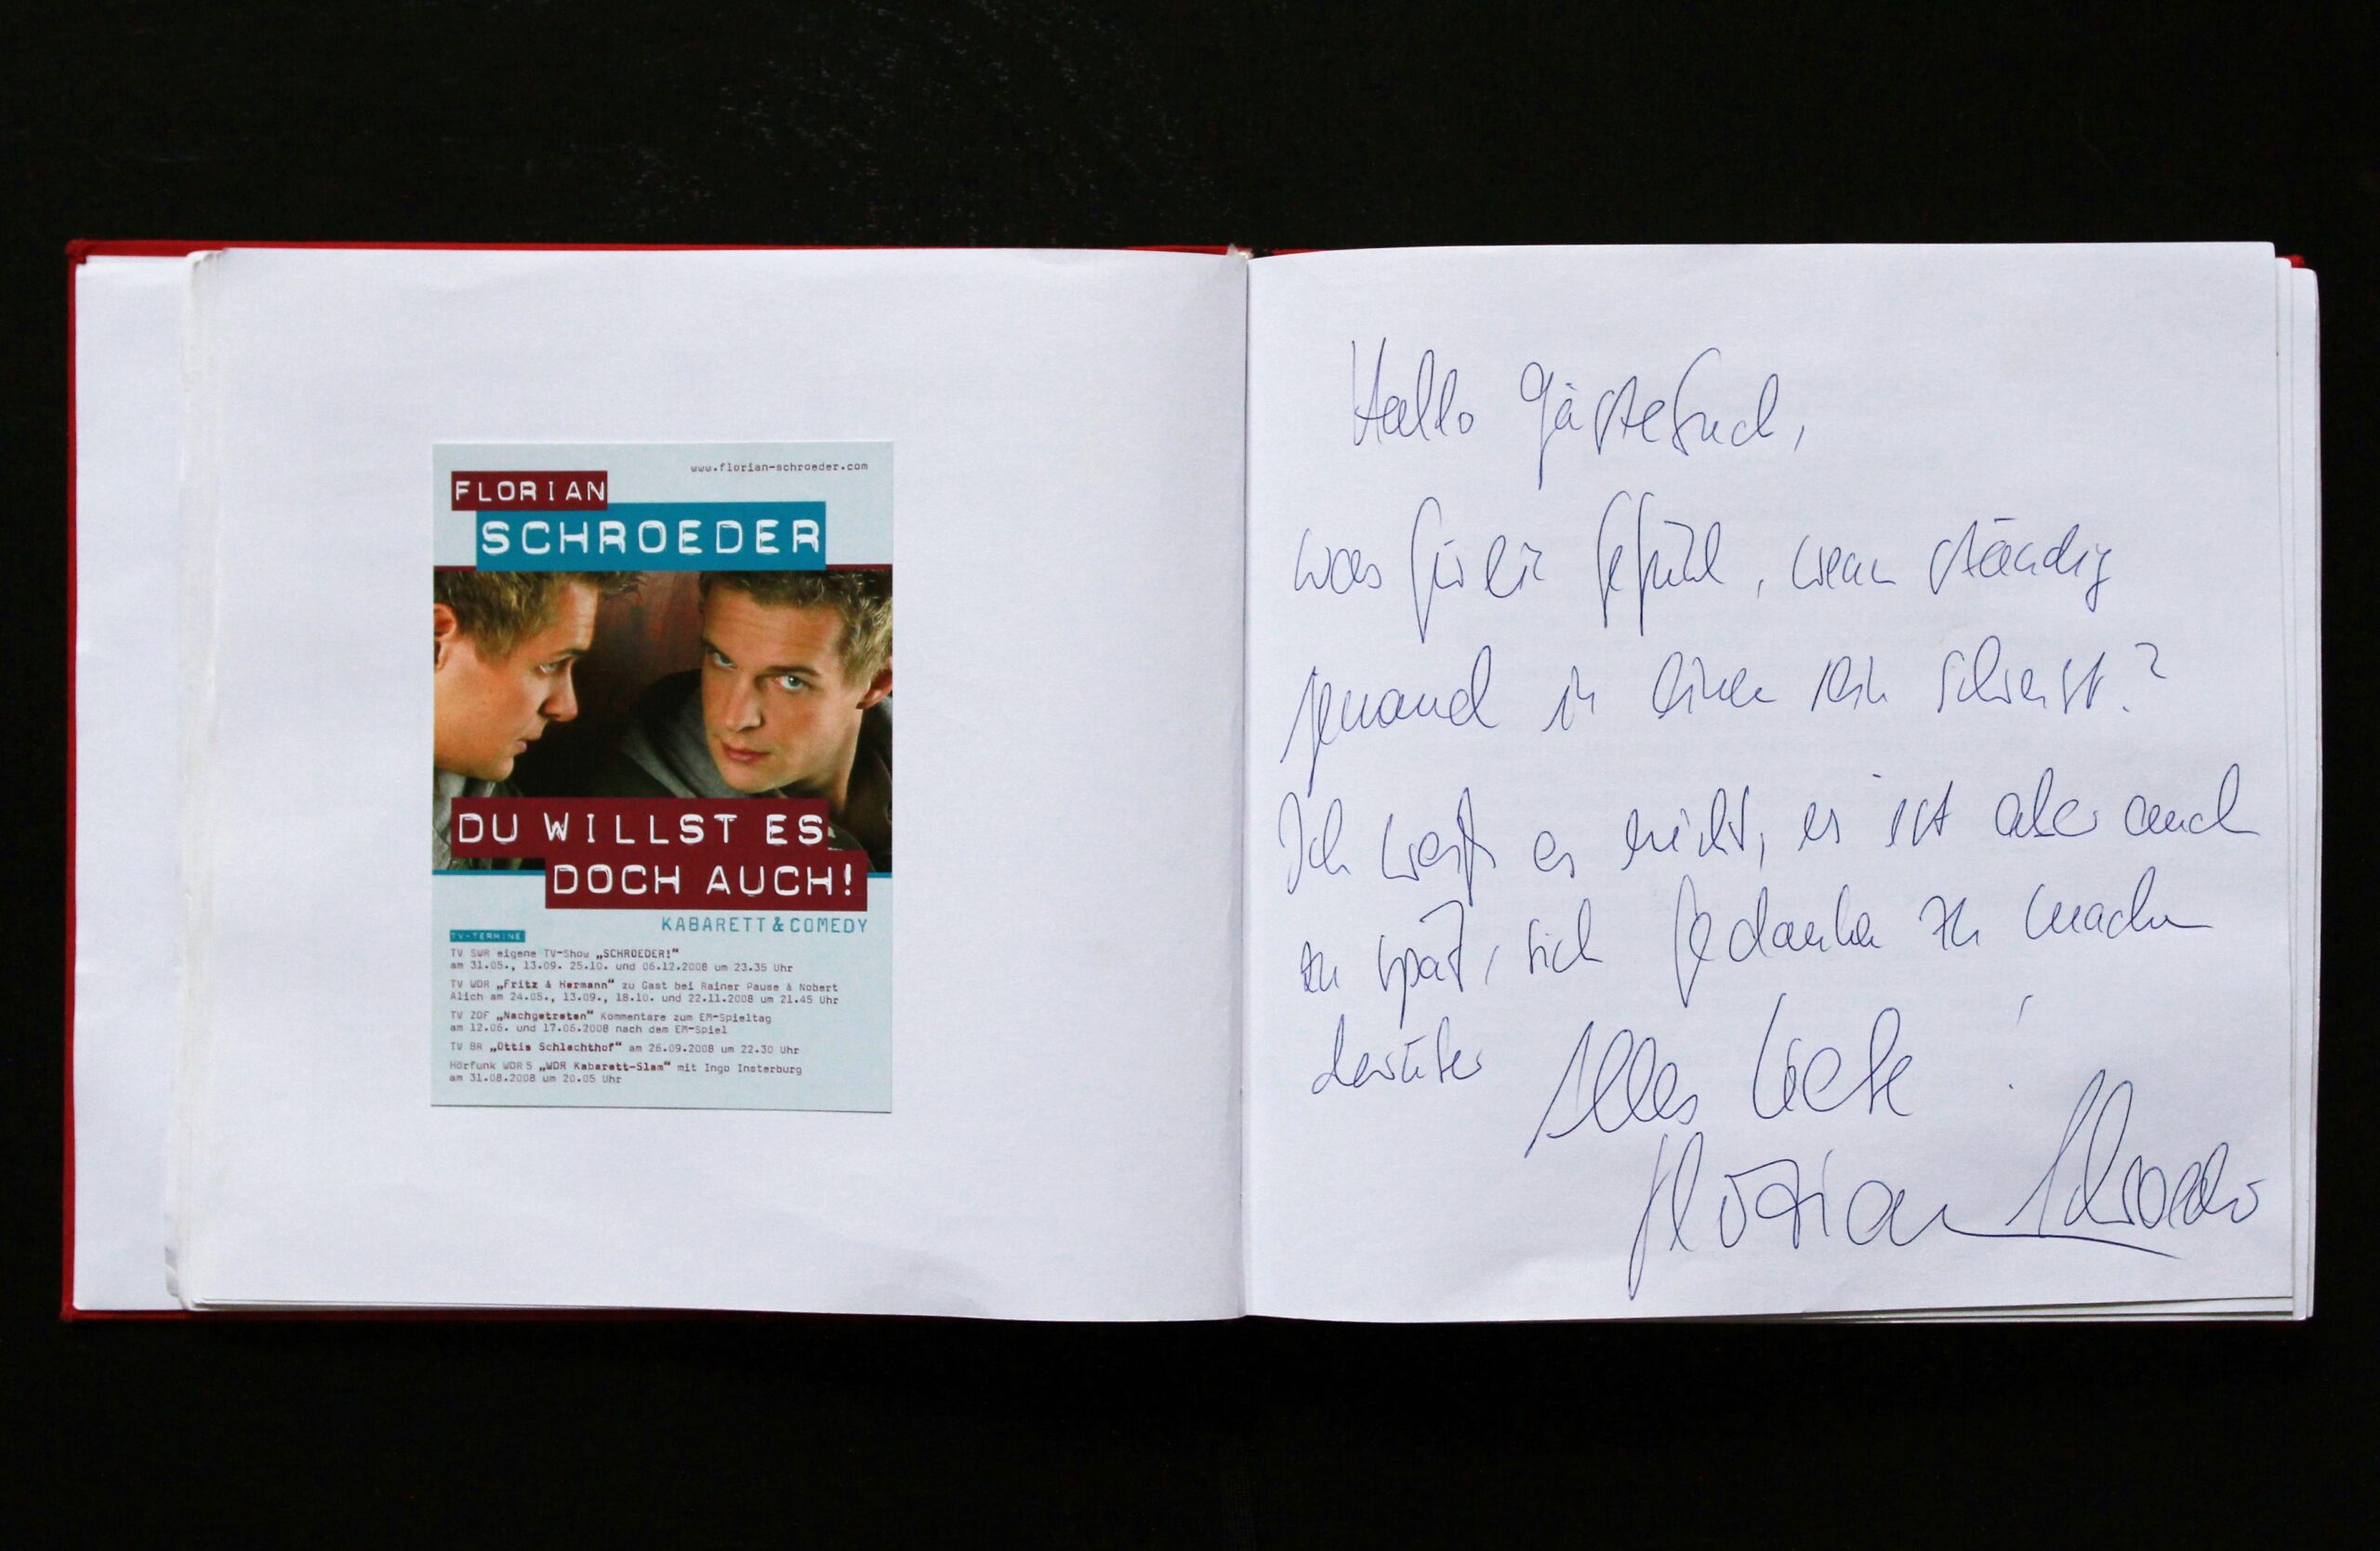 www.florian-schroeder.com
FLORIAN
SCHROEDER
DU WILLST ES
DOCH AUCH!
KABARETT & COMEDY
TV-TERMINE
TV SWR eigene TV-Show „SCHROEDER!"
am 31.05., 13.09. 25.10. und 06.12.2008 um 23.35 Uhr
TV WDR „Fritz & Hermann" zu Gast bei Rainer Pause & Nobert
Alich am 24.05., 13.09., 18.10. und 22.11.2008 um 21.45 Uhr
TV ZDF „Nachgetreten" Kommentare zum EM-Spieltag
am 12.06. und 17.06.2008 nach dem EM-Spiel
TV BR „Ottis Schlachthof" am 26.09.2008 um 22.30 Uhr
Hörfunk WDR 5 „WDR Kabarett-Slam" mit Ingo Insterburg
am 31.08.2008 um 20.05 Uhr
Hallo Gästebuch,
was für ein Gefühl, wenn ständig
jemand in einen rein schreibt?
Ich weiß es nicht, es ist aber auch
zu spät, sich Gedanken zu machen
darüber
Alles Liebe!
Florian Schroeder